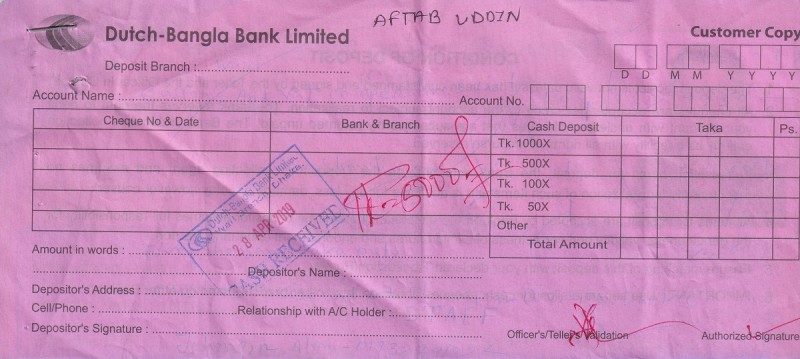 AFTAB UDDIN
Dutch-Bangla Bank Limited
Customer Copy
Deposit Branch :
D D M M Y Y Y Y
Account Name : Account No.
Cheque No & Date Bank & Branch Cash Deposit Taka Ps.
Tk. 1000X
Tk. 500X
Tk. 100X
Tk. 50X
Other
Total Amount
Dutch Bangla Bank Limited
28 APR 2009
CASH RECEIVED
Amount in words :
Depositor's Name :
Depositor's Address :
Cell/Phone : Relationship with A/C Holder :
Depositor's Signature :
Officer's/Teller's Validation Authorized Signature